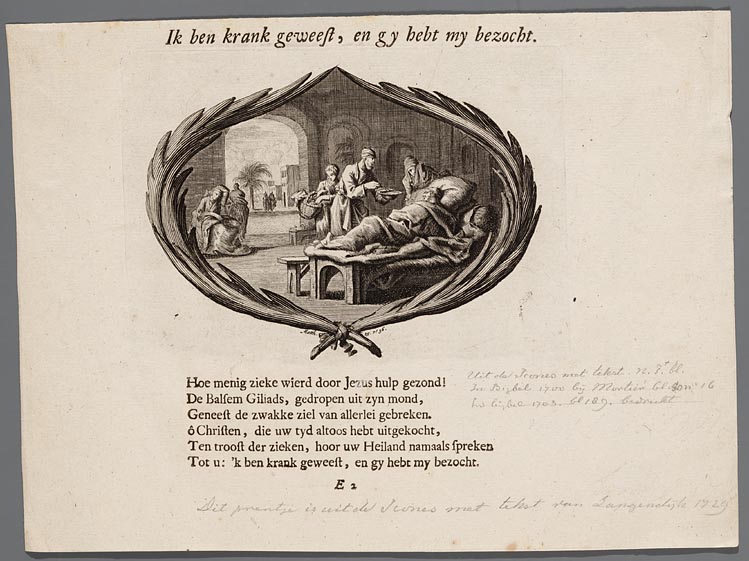 Ik ben krank geweeſt, en gy hebt my bezocht.
Matth. 25. vs 36.
Hoe menig zieke wierd door Jezus hulp gezond!
De Balſem Giliads, gedropen uit zyn mond,
Geneeſt de zwakke ziel van allerlei gebreken.
ô Chriſten, die uw tyd altoos hebt uitgekocht,
Ten trooſt der zieken, hoor uw Heiland namaals ſpreken
Tot u: 'k ben krank geweeſt, en gy hebt my bezocht.
E 2
Uit de Icones met tekst. N. T. bl.
In Bijbel 1700 bij Mortier bl.
bijbel 1703. bl 189. gedrukt
Dit prentje is uit de Icones met tekst van Langendijk 1729